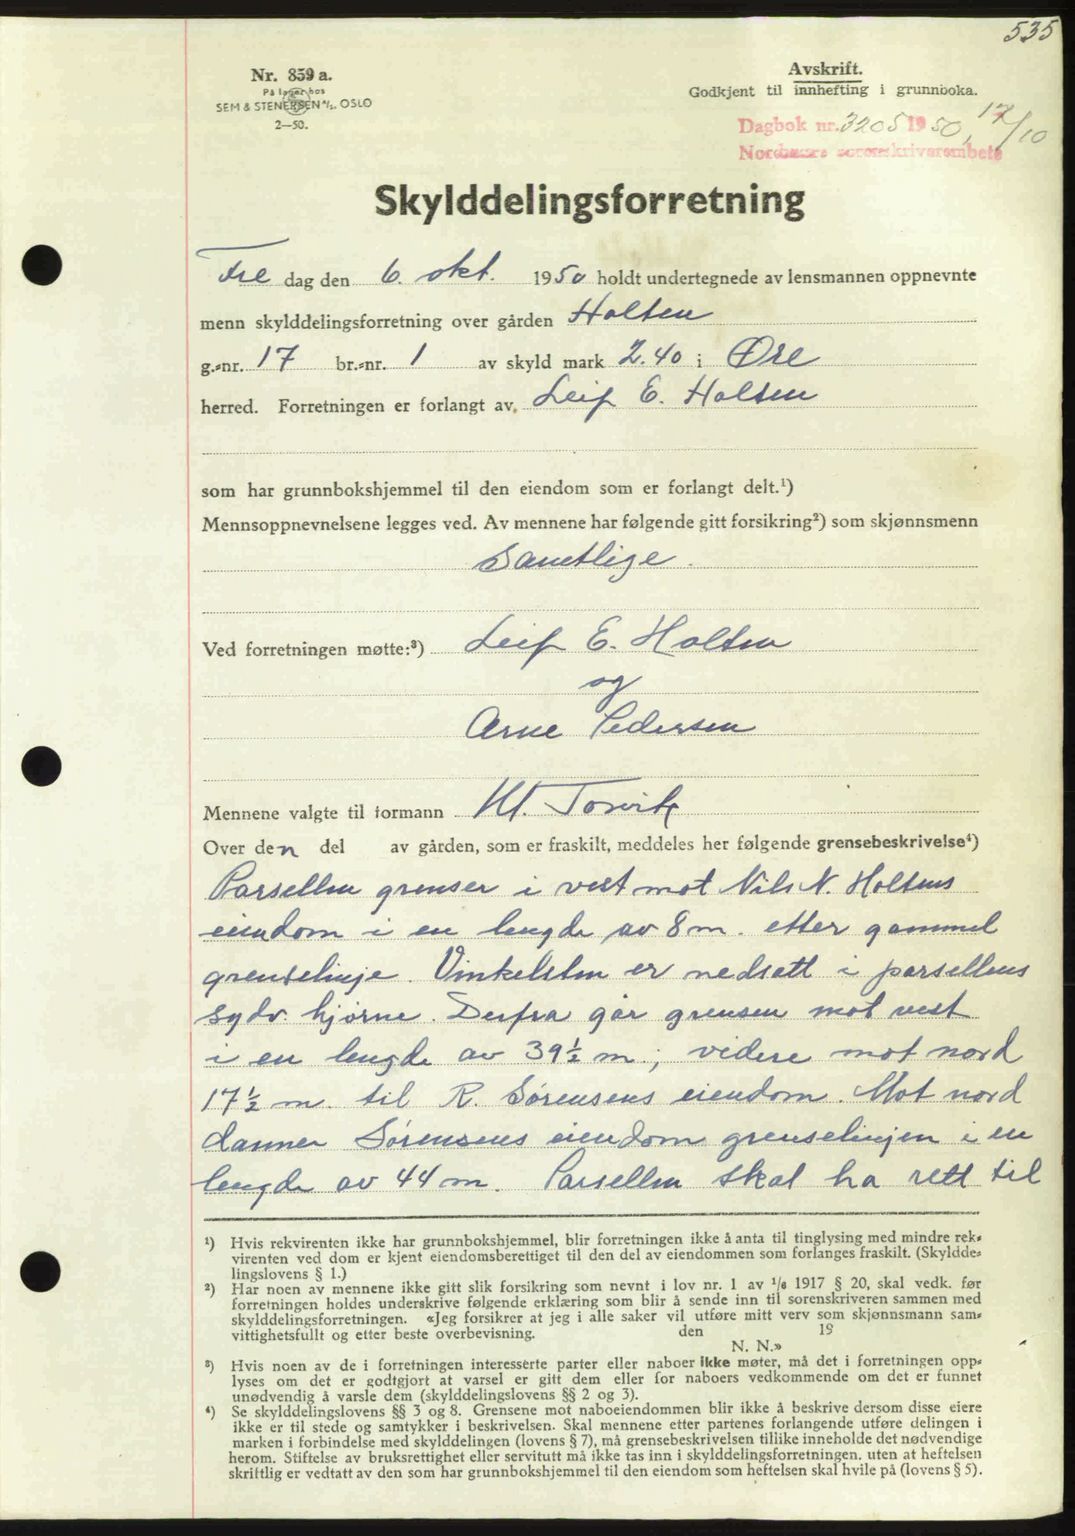 535
Nr. 859 a.
På lager hos
SEM & STENERSEN A/S. OSLO
2—50.
Avskrift.
Godkjent til innhefting i grunnboka.
Dagbok nr. 3205 1950, 17/10
Nordmøre sorenskriverembete
Skylddelingsforretning
Fre dag den 6. okt. 1950 holdt undertegnede av lensmannen oppnevnte
menn skylddelingsforretning over gården Holten
g.-nr. 17 br.-nr. 1 av skyld mark 2.40 i Øre
herred. Forretningen er forlangt av Leif E. Holten
som har grunnbokshjemmel til den eiendom som er forlangt delt.¹)
Mennsoppnevnelsene legges ved. Av mennene har følgende gitt forsikring²) som skjønnsmenn
Samtlige.
Ved forretningen møtte:³) Leif E. Holten
og
Arne Pedersen
Mennene valgte til formann Kt. Torvik
Over den del av gården, som er fraskilt, meddeles her følgende grensebeskrivelse⁴)
Parsellen grenser i vest mot Nils N. Holtens
eiendom i en lengde av 8 m. etter gammel
grenselinje. Vinkelsten er nedsatt i parsellens
sydv. hjørne. Derfra går grensen mot vest
i en lengde av 39 ½ m; videre mot nord
17 ½ m. til R. Sørensens eiendom. Mot nord
danner Sørensens eiendom grenselinjen i en
lengde av 44 m. Parsellen skal ha rett til
¹) Hvis rekvirenten ikke har grunnbokshjemmel, blir forretningen ikke å anta til tinglysing med mindre rek-
virenten ved dom er kjent eiendomsberettiget til den del av eiendommen som forlanges fraskilt. (Skyldde-
lingslovens § 1.)
²) Har noen av mennene ikke gitt slik forsikring som nevnt i lov nr. 1 av 1/6 1917 § 20, skal vedk. før
forretningen holdes underskrive følgende erklæring som blir å sende inn til sorenskriveren sammen med
skylddelingsforretningen. «Jeg forsikrer at jeg i alle saker vil utføre mitt verv som skjønnsmann sam-
vittighetsfullt og etter beste overbevisning. den 19
N. N.»
³) Hvis noen av de i forretningen interesserte parter eller naboer ikke møter, må det i forretningen opp-
lyses om det er godtgjort at varsel er gitt dem eller for naboers vedkommende om det er funnet
unødvendig å varsle dem (skylddelingslovens §§ 2 og 3).
⁴) Se skylddelingslovens §§ 3 og 8. Grensene mot naboeiendommen blir ikke å beskrive dersom disse eiere
ikke er til stede og samtykker i beskrivelsen. Skal mennene etter partenes forlangende utføre delingen i
marken i forbindelse med skylddelingen (lovens § 7), må grensebeskrivelsen tillike inneholde det nødvendige
herom. Stiftelse av bruksrettighet eller servitutt må ikke tas inn i skylddelingsforretningen, uten at heftelsen
skriftlig er vedtatt av den som har grunnbokshjemmel til den eiendom som heftelsen skal hvile på (lovens § 5).